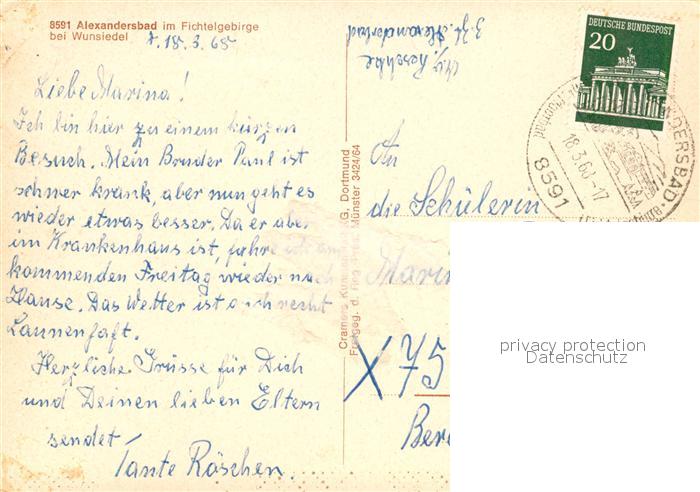 8591 Alexandersbad im Fichtelgebirge
bei Wunsiedel
18.3.68
Liebe Marina!
Ich bin hier zu einem kurzen
Besuch. Mein Bruder Paul ist
schwer krank, aber nun geht es
wieder etwas besser. Da er aber
im Krankenhaus ist, fahre ich am
kommenden Freitag wieder nach
Hause. Das Wetter ist auch recht
Launenhaft.
Herzliche Grüsse für Dich
und Deinen lieben Eltern
sendet
Tante Röschen.
Cramers Kunst KG, Dortmund
Freigeg. d. Reg. Präs. Münster 3424/64
z.Zt. Alexandersbad
DEUTSCHE BUNDESPOST
20
18.3.68-17
8591
An
die Schülerin
Marin
X 75
Ber
privacy protection
Datenschutz